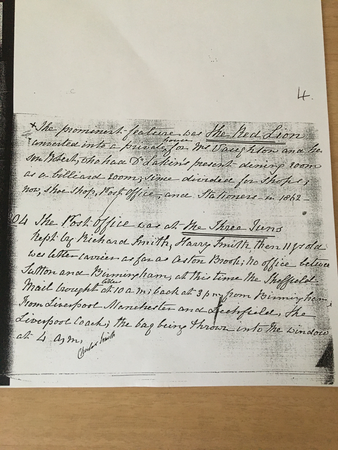 4.
x The prominent feature was the Red Lion
converted into a private house for Mr Vaughton and his
son Robert, who had Dr Lakin's present dining room
as a billiard room; since divided for Shops;
now, Shoe Shop, Post Office, and Stationers in 1862
04 The Post Office was at the Three Tuns
kept by Richard Smith, Harry Smith then 11 yrs old
was letter carrier as far as Aston Brook; no office between
Sutton and Birmingham; at this time the Sheffield
Mail brought letters at 10 a.m; back at 3 p.m, from Birmingham,
From Liverpool Manchester and Lichfield, the
Liverpool coach; the bag being thrown into the window
at 4 a.m.
Smith